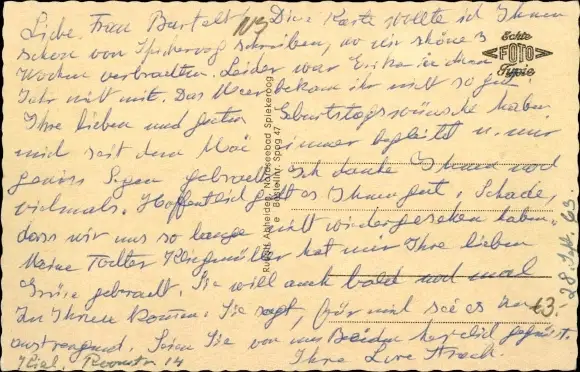 Liebe Frau Bartelt! Diese Karte wollte ich Ihnen
schon von Spiekeroog schreiben, wo wir schöne 3
Wochen verbrachten. Leider war Erika in diesem
Jahr nicht mit. Das Meer bekam ihr nicht so gut.
Ihre lieben und guten Geburtstagswünsche haben
mich seit dem Mai immer begleitet u. mir
gewiss Segen gebracht. Ich danke Ihnen noch
vielmals. Hoffentlich geht es Ihnen gut. Schade,
dass wir uns so lange nicht wiedergesehen haben.
Meine Tochter hat mir Ihre lieben
Grüsse gebracht. Sie will auch bald noch mal
zu Ihnen kommen. Sie sagt, für mich sei es zu
anstrengend. Seien Sie von uns Beiden herzlich gegrüsst.
Ihre
Kiel, 14
Echte
FOTO
Typie
Nordseebad Spiekeroog
Bestellnr. Spog 47
63.